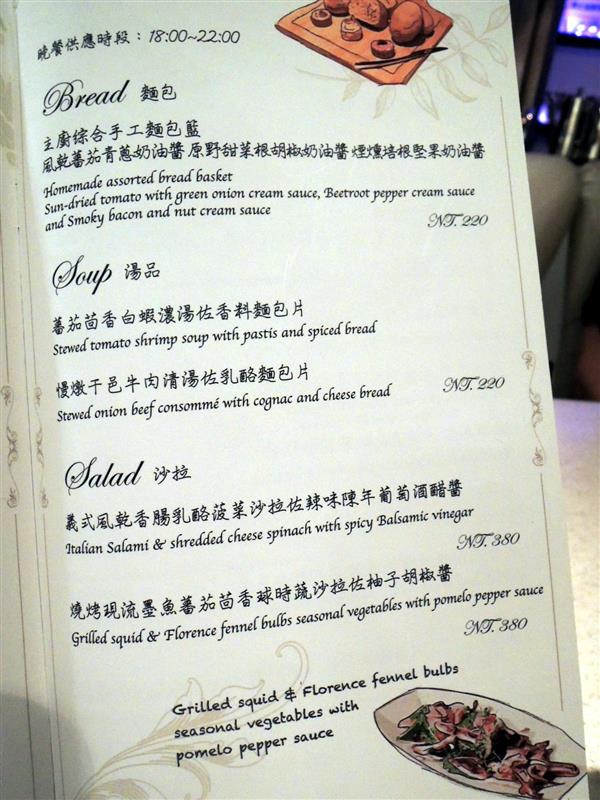 晚餐供應時段：18:00~22:00
Bread 麵包
主廚综合手工麵包籃
風乾蕃茄青蔥奶油醬 原野甜菜根胡椒奶油醬 煙燻培根堅果奶油醬
Homemade assorted bread basket
Sun-dried tomato with green onion cream sauce, Beetroot pepper cream sauce
and Smoky bacon and nut cream sauce
NT. 220
Soup 湯品
蕃茄茴香白蝦濃湯佐香料麵包片
Stewed tomato shrimp soup with pastis and spiced bread
慢燉干邑牛肉清湯佐乳酪麵包片
Stewed onion beef consommé with cognac and cheese bread
NT. 220
Salad 沙拉
義式風乾香腸乳酪菠菜沙拉佐辣味陳年葡萄酒醋醬
Italian Salami & shredded cheese spinach with spicy Balsamic vinegar
NT. 380
燒烤現流墨魚蕃茄茴香球時蔬沙拉佐柚子胡椒醬
Grilled squid & Florence fennel bulbs seasonal vegetables with pomelo pepper sauce
NT. 380
Grilled squid & Florence fennel bulbs
seasonal vegetables with
pomelo pepper sauce